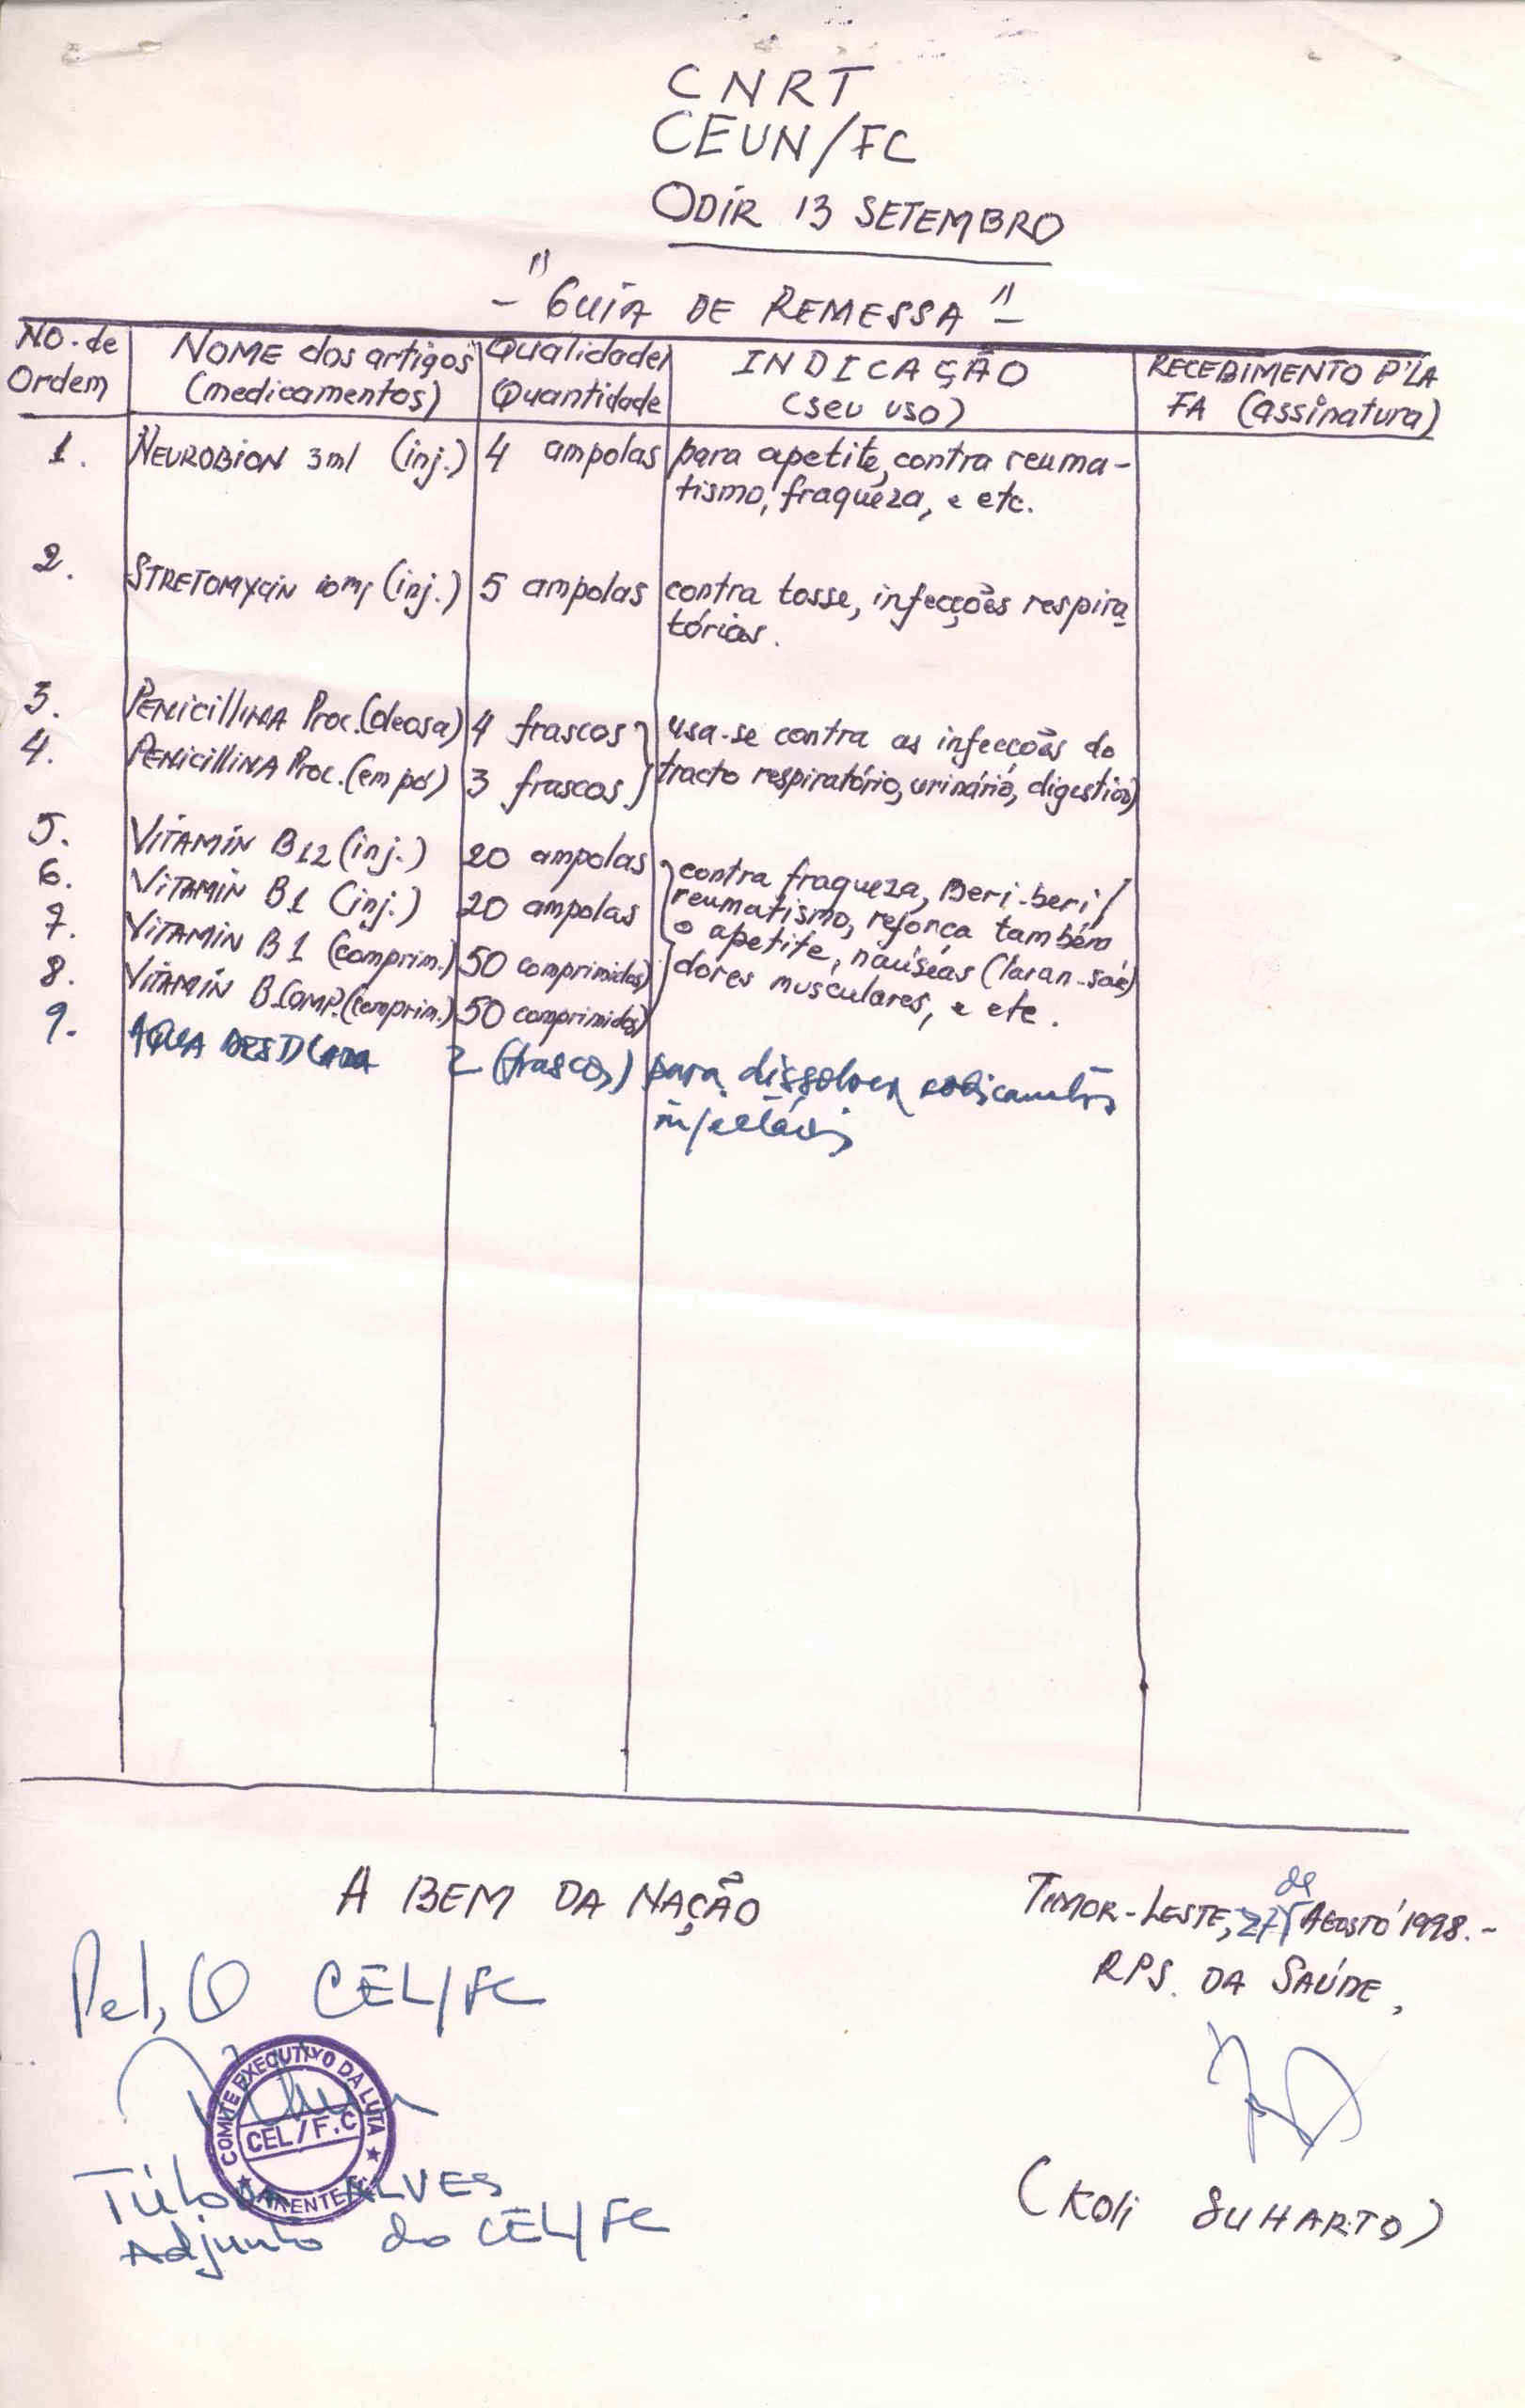 CNRT
CEUN/FC
ODIR 13 SETEMBRO
- "GUIA DE REMESSA" -
NO. de Ordem | NOME dos artigos (medicamentos) | Qualidade/ Quantidade | INDICAÇÃO (seu uso) | RECEBIMENTO P'LA FA (assinatura)
1. NEUROBION 3ml (inj.) 4 ampolas para apetite, contra reuma-
tismo, fraqueza, e etc.
2. STRETOMYCIN 10ml (inj.) 5 ampolas contra tosse, infecções respira-
tórias.
3. PENICILLINA Proc. (oleosa) 4 frascos usa-se contra as infecções do
4. PENICILLINA Proc. (em pó) 3 frascos tracto respiratório, urinário, digestivo)
5. VITAMIN B12 (inj.) 20 ampolas contra fraqueza, Beri-beri/
6. VITAMIN B1 (inj.) 20 ampolas reumatismo, reforça também
7. VITAMIN B1 (comprim.) 50 comprimidos o apetite, naúseas (laran-sae)
8. VITAMIN B.COMP. (comprim.) 50 comprimidos dores musculares, e etc.
9. AQUA DESTILADA 2 (frascos) para dissolver
injectáveis
A BEM DA NAÇÃO
TIMOR-LESTE, 27 de AGOSTO 1998.-
RPS. DA SAÚDE,
Pel, O CEL/FC
COMITE EXECUTIVO DA LUTA
CEL/F.C
ALVES
Adjunto do CEL/FC
(KOLI SUHARTO)